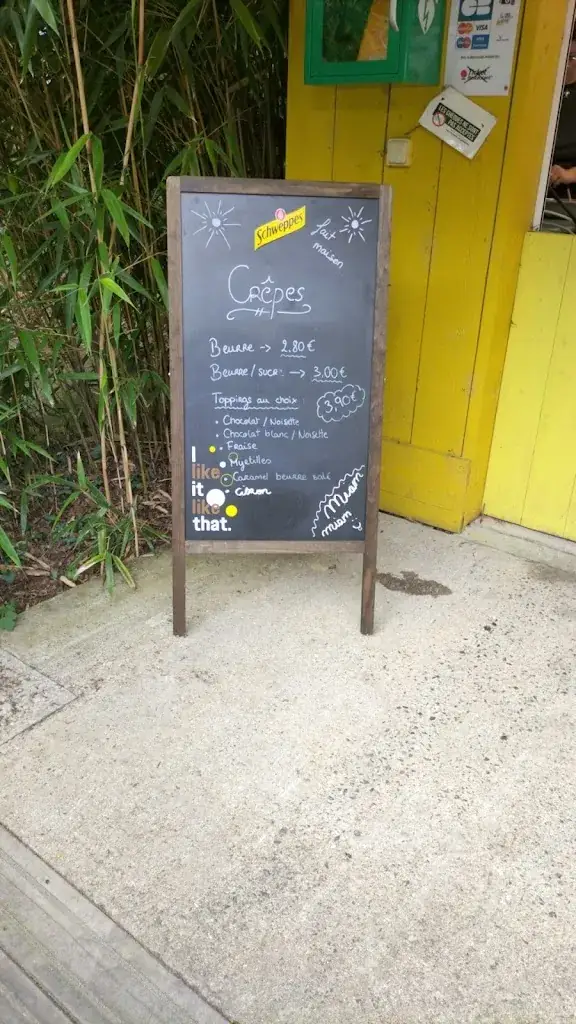 CB
VISA
Schweppes
fait
maison
Crêpes
Beurre -> 2.80€
Beurre/sucre -> 3.00€
Toppings au choix : 3,90€
• Chocolat / Noisette
• Chocolat blanc / Noisette
• Fraise
• Myrtilles
• Caramel beurre salé
• Citron
I
like
it
like
that.
Miam
miam :)